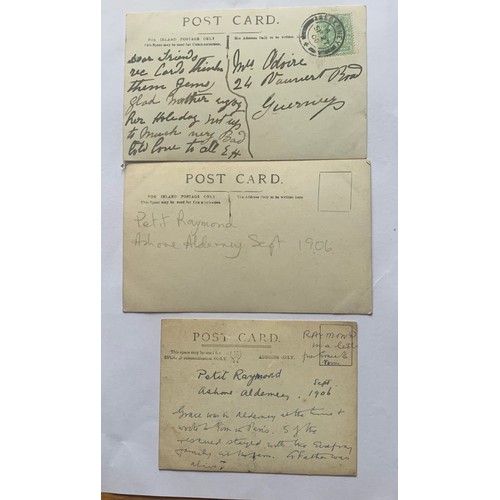 POST CARD.
FOR INLAND POSTAGE ONLY
This Space may be used for Communication.
The Address Only to be written here
ALDERNEY
Dear Friends
rec Cards thinks
them Gems,
glad Mother enjoy
her Holiday not up
to Much very Bad
Cold Love to all E H
24 Vauvert Road
Guernsey
POST CARD.
FOR INLAND POSTAGE ONLY
This Space may be used for Communication
The Address Only to be written here
Petit Raymond
Ashore Alderney Sept 1906
POST CARD.
This space may be used for
communication
ADDRESS ONLY.
RAYMOND
in a
Petit Raymond
Ashore Alderney
Sept.
1906
Grace was in Alderney at the time +
5 of the
stayed with the
family
Father was